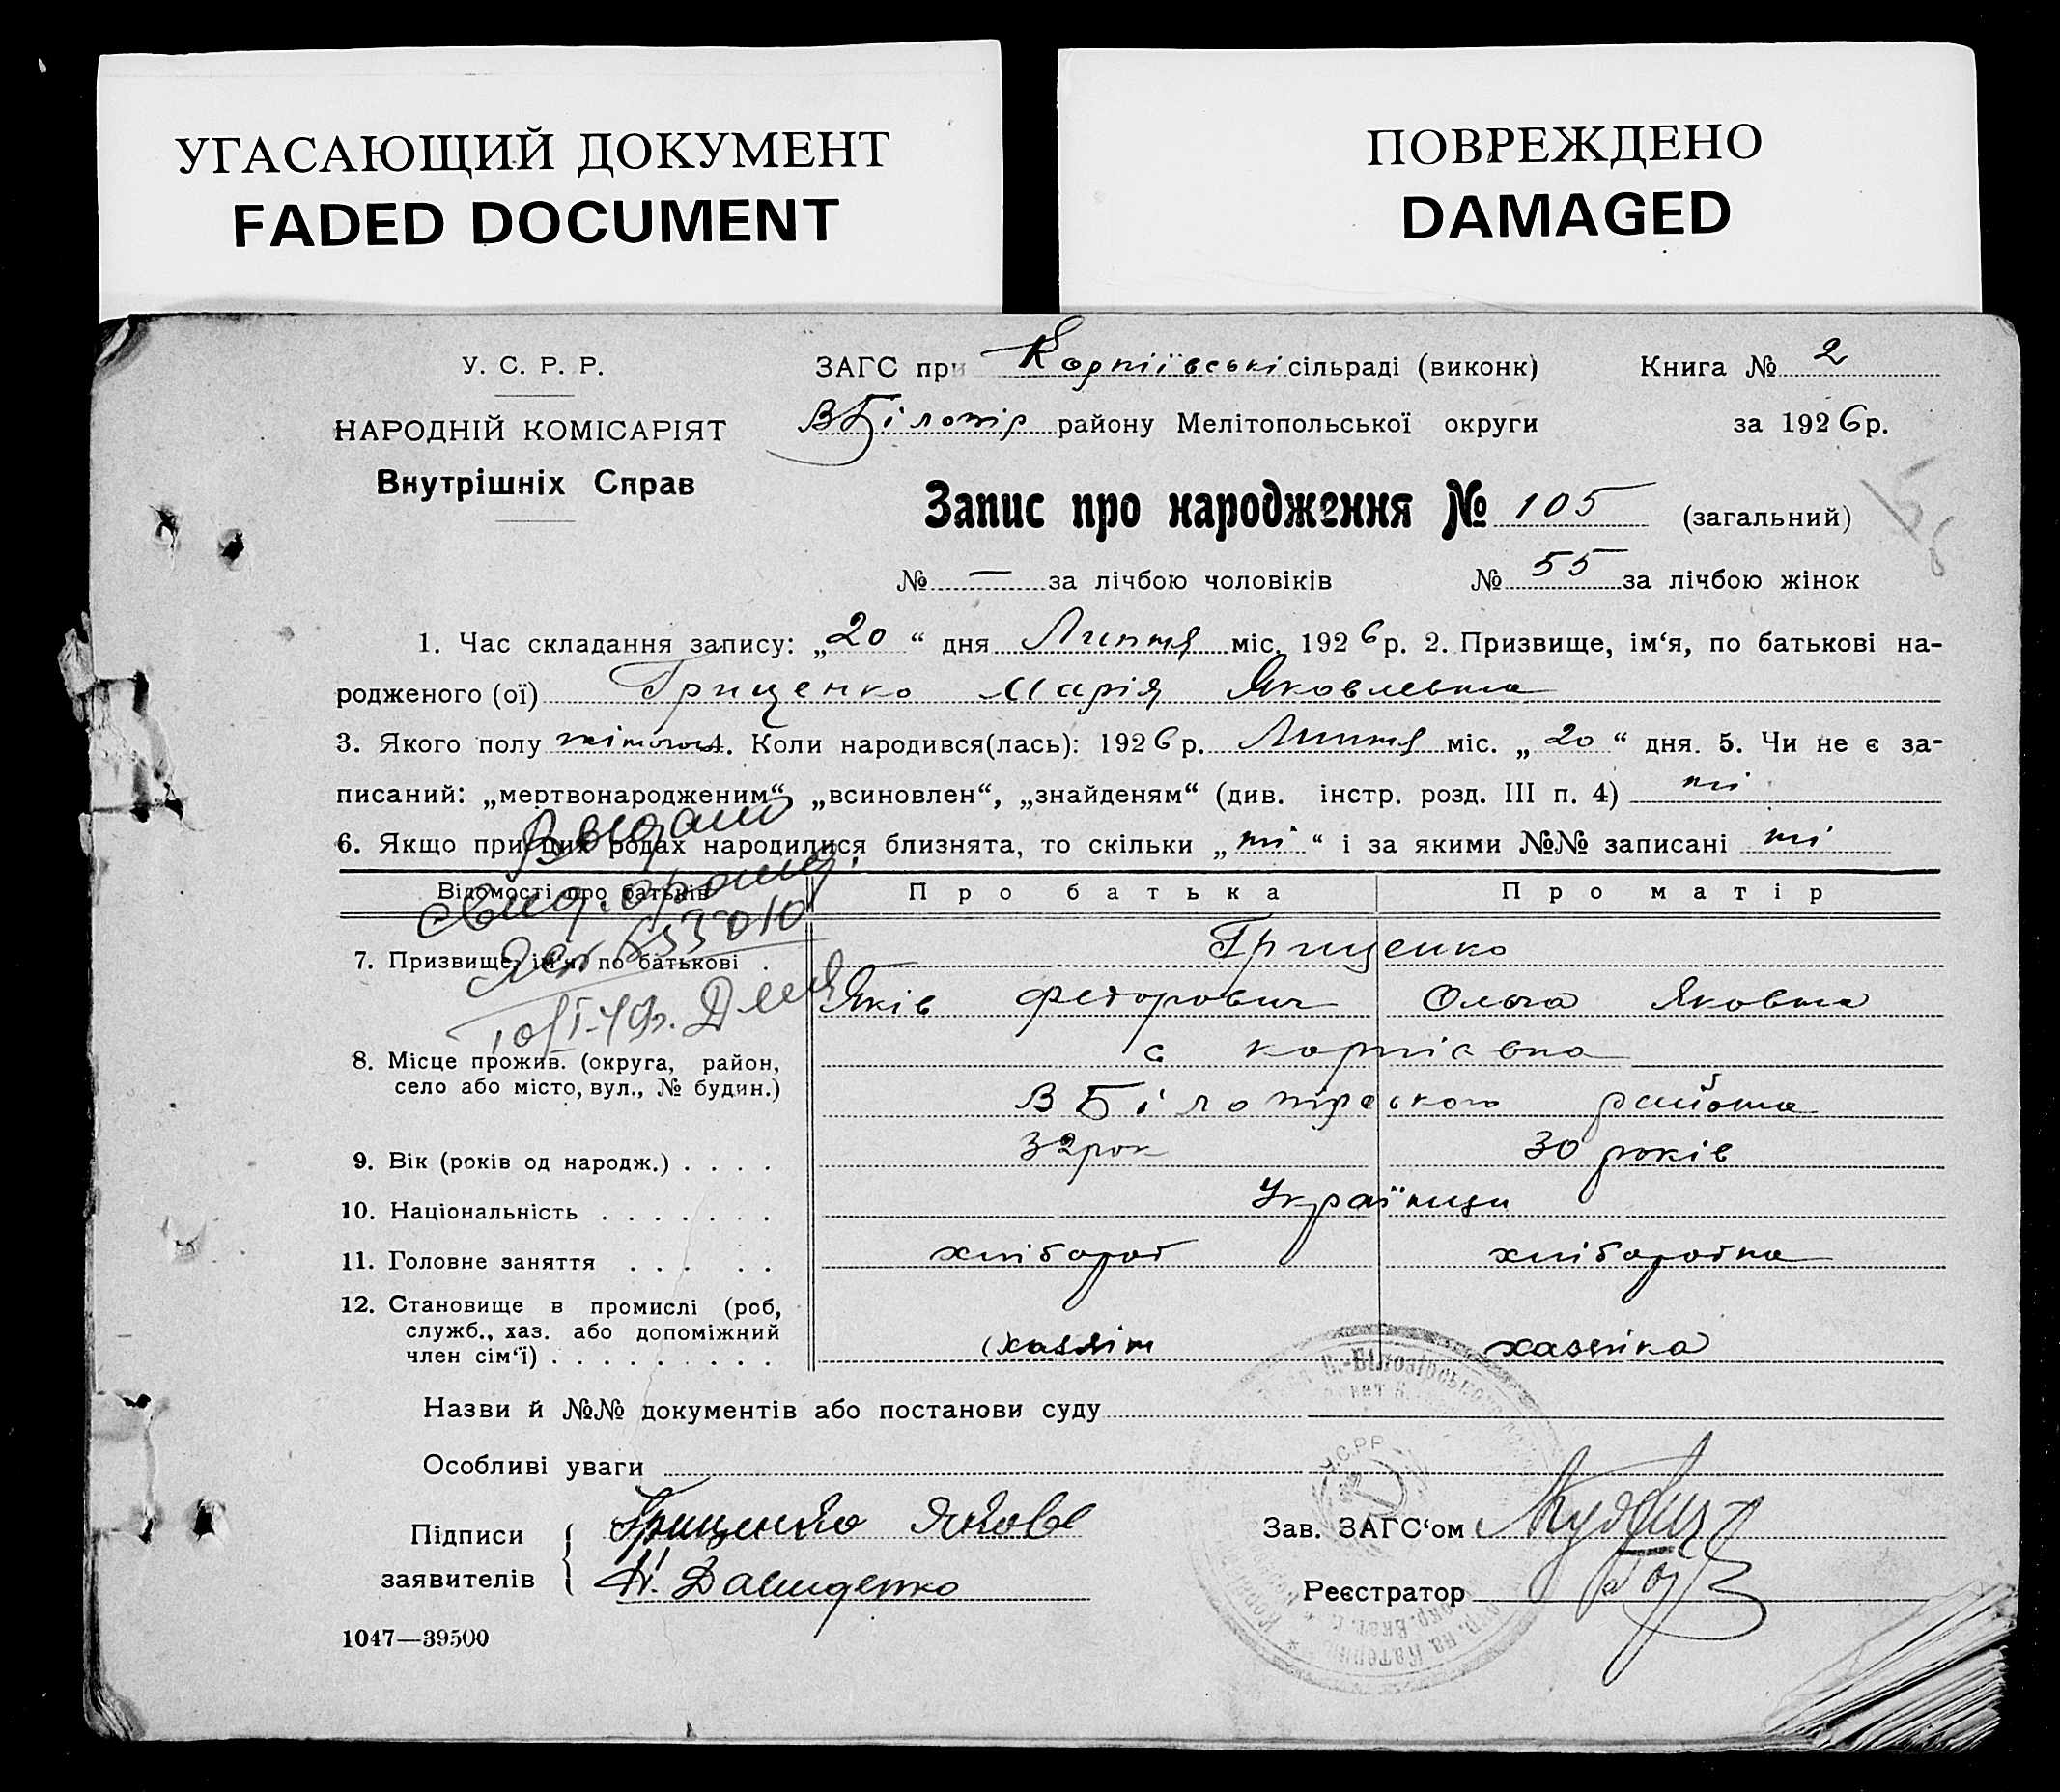 УГАСАЮЩИЙ ДОКУМЕНТ
FADED DOCUMENT
ПОВРЕЖДЕНО
DAMAGED
У. С. Р. Р.
НАРОДНІЙ КОМІСАРІЯТ
Внутрішніх Справ
ЗАГС при Корніївські сільраді (виконк)
ВБілозір району Мелітопольської округи
Книга № 2
за 1926 р.
Запис про народження № 105 (загальний)
№ — за лічбою чоловіків № 55 за лічбою жінок
1. Час складання запису: „20“ дня Липня міс. 1926 р. 2. Призвище, ім‘я, по батькові на-
родженого (ої) Грищенко Марія Яковлевна
3. Якого полу жіночого 4. Коли народився(лась): 1926 р. Липня міс. „20“ дня. 5. Чи не є за-
писаний: „мертвонародженим“, „всиновлен“, „знайденям“ (див. інстр. розд. III п. 4) ні
6. Якщо при цих родах народилися близнята, то скільки „ні“ і за якими №№ записані ні
Відомості про батьків Про батька Про матір
7. Призвище, ім‘я, по батькові . Грищенко
Яків Федорович Ольга Яковна
8. Місце прожив. (округа, район,
село або місто, вул., № будин.)
с Корніевка
ВБілозірського района
9. Вік (років од народж.) . . . . 32 рок 30 років
10. Національність . . . . . . . Українци
11. Головне заняття . . . . . хлібороб хліборобка
12. Становище в промислі (роб,
служб., хаз. або допоміжний
член сім‘ї) . . . . . . . . . хазяін хазяіка
Назви й №№ документів або постанови суду
Особливі уваги
Підписи
заявителів
Грищенко Яков
Н. Давиденко
Зав. ЗАГС‘ом
Реєстратор
1047—39500